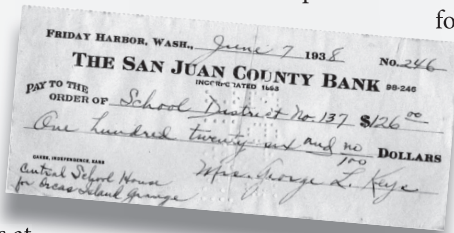 fo
FRIDAY HARBOR, WASH., June 7 1938 No. 246
THE SAN JUAN COUNTY BANK 98-246
INCORPORATED 1903
PAY TO THE
ORDER OF School District No. 137 $126 00
One hundred twenty six and no/100 DOLLARS
Mrs. George L. Keys
Central School House
for Orcas Island Grange
s at